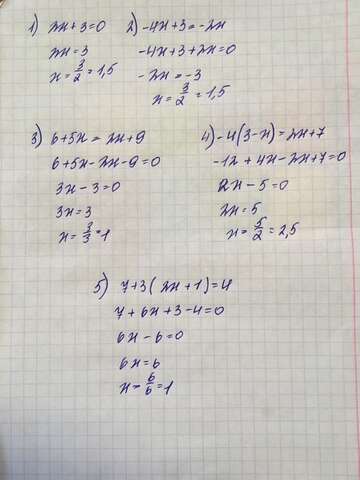 1) 2x+3=0
2x=3
x=3/2=1,5
2) -4x+3=-2x
-4x+3+2x=0
-2x=-3
x=3/2=1,5
3) 6+5x=2x+9
6+5x-2x-9=0
3x-3=0
3x=3
x=3/3=1
4) -4(3-x)=2x+7
-12+4x-2x+7=0
2x-5=0
2x=5
x=5/2=2,5
5) 7+3(2x+1)=4
7+6x+3-4=0
6x-6=0
6x=6
x=6/6=1